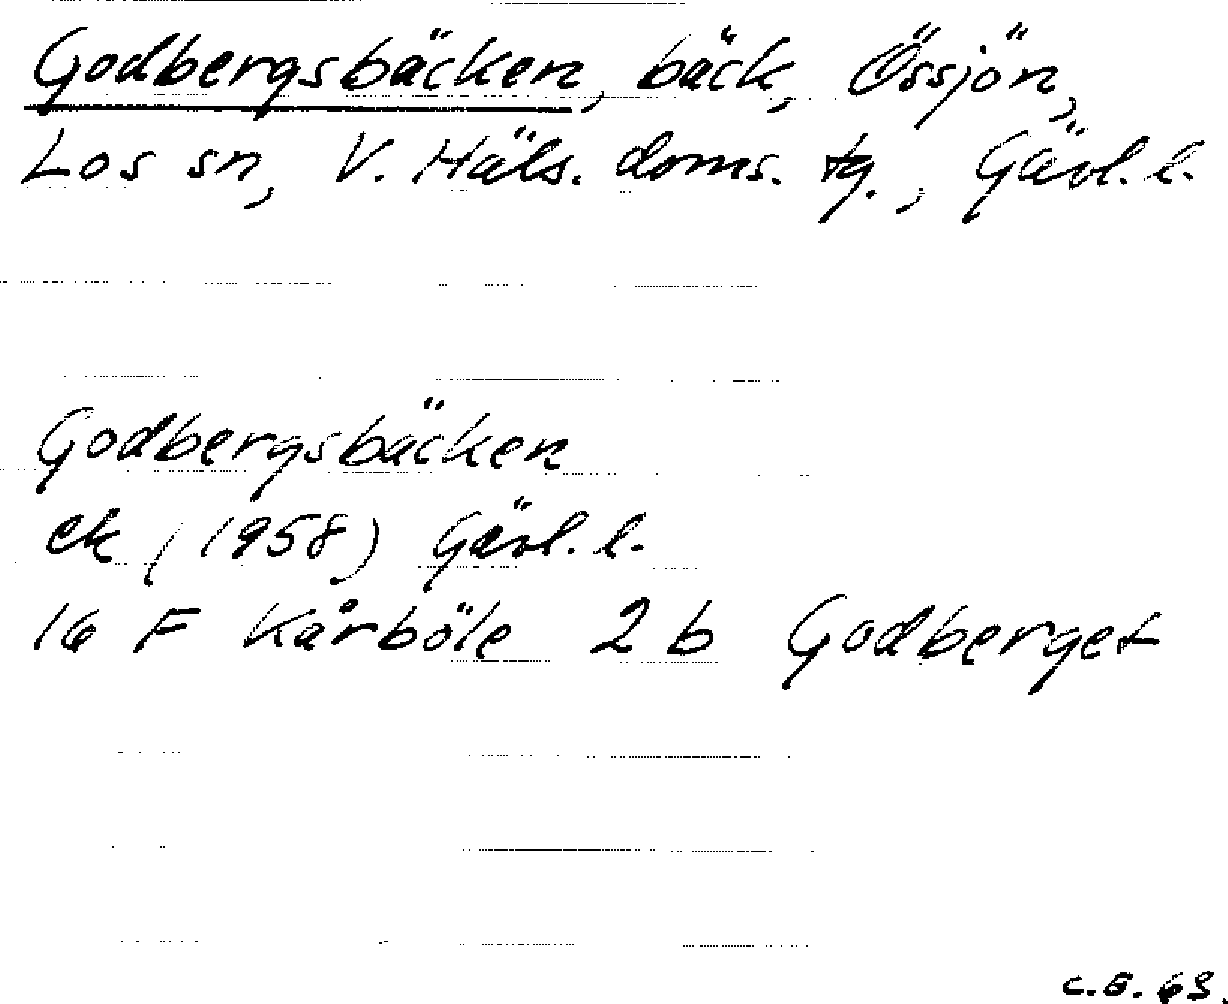 Godbergsbäcken, bäck, Össjön,
Los sn, V. Häls. doms. tg., Gävl. l.
Godbergsbäcken
ek (1958) Gävl. l.
16 F Kårböle 2 b Godberget
C.E. 63.